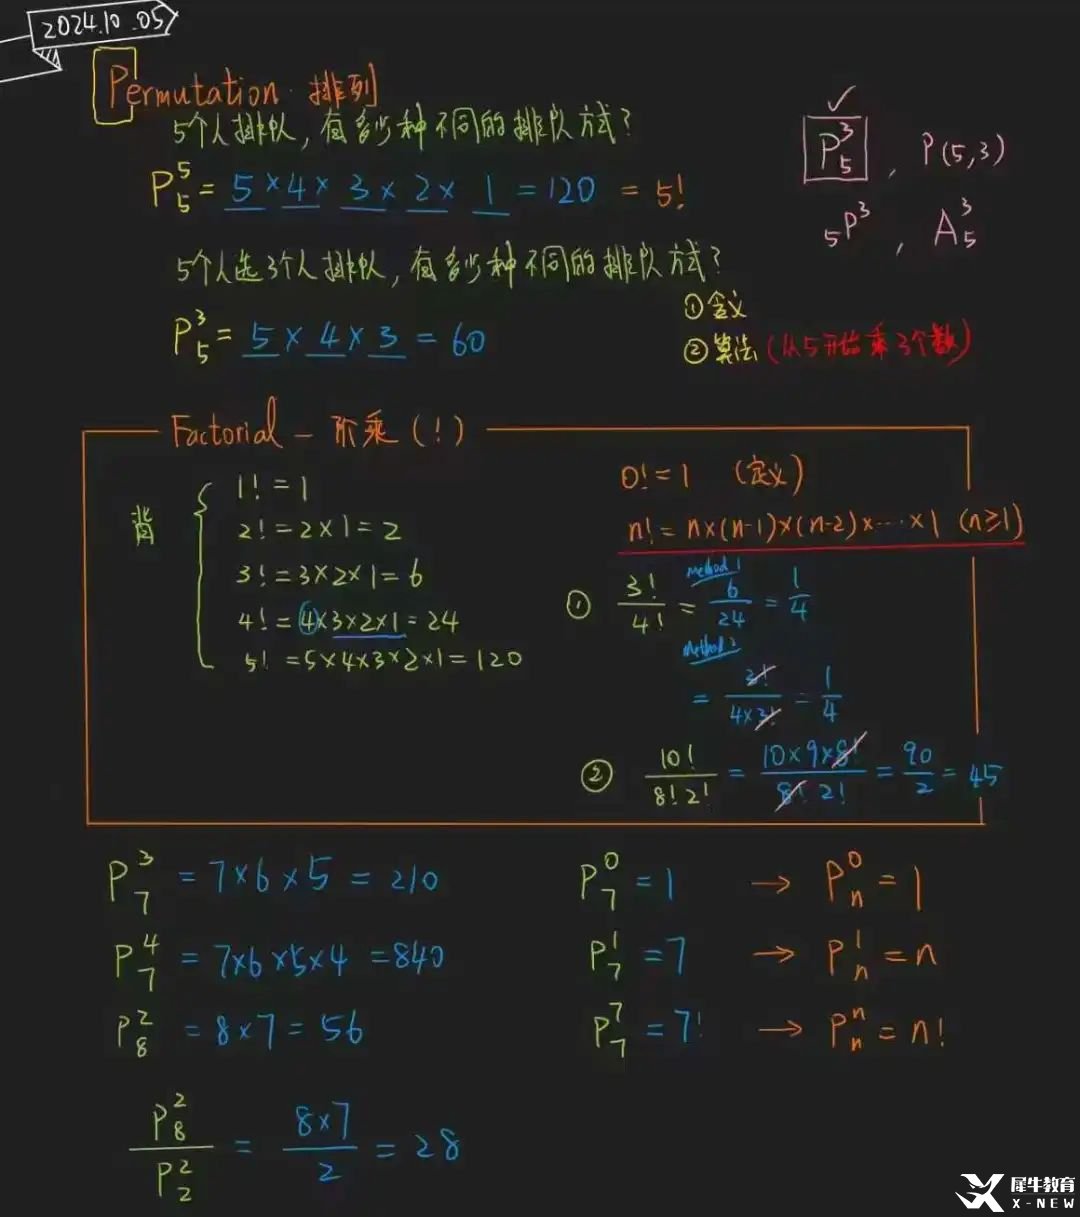 2024.10.05
Permutation 排列
5个人排队，有多少种不同的排队方式？
P₅⁵ = 5 × 4 × 3 × 2 × 1 = 120 = 5!
✓
P₅³ , P(5,3)
₅P³ , A₅³
5个人选3个人排队，有多少种不同的排队方式？
P₅³ = 5 × 4 × 3 = 60
① 含义
② 算法 (从5开始乘3个数)
Factorial — 阶乘 (!)
背
1! = 1
2! = 2×1 = 2
3! = 3×2×1 = 6
4! = 4×3×2×1 = 24
5! = 5×4×3×2×1 = 120
0! = 1 (定义)
n! = n×(n-1)×(n-2)×…×1 (n≥1)
Method 1
① 3!/4! = 6/24 = 1/4
Method 2
= 3!/4×3! = 1/4
② 10!/8!2! = 10×9×8!/8!2! = 90/2 = 45
P₇³ = 7×6×5 = 210
P₇⁴ = 7×6×5×4 = 840
P₈² = 8×7 = 56
P₈²/P₂² = 8×7/2 = 28
P₇⁰ = 1 → Pₙ⁰ = 1
P₇¹ = 7 → Pₙ¹ = n
P₇⁷ = 7! → Pₙⁿ = n!
犀牛教育
X-NEW